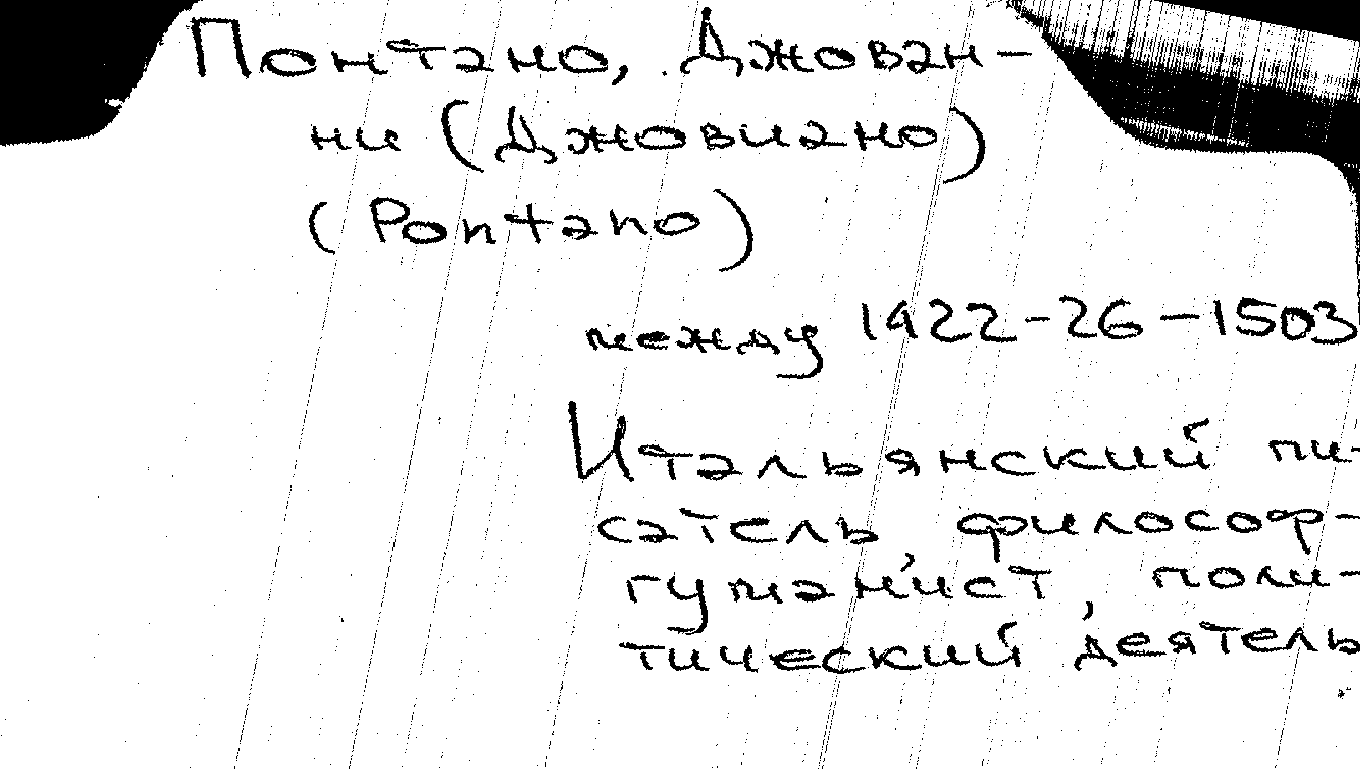 Понтано, Джован-
ни (Джовиано)
(Pontano)
между 1422-26-1503
Итальянский пи-
сатель, философ-
гуманист, поли-
тический деятель